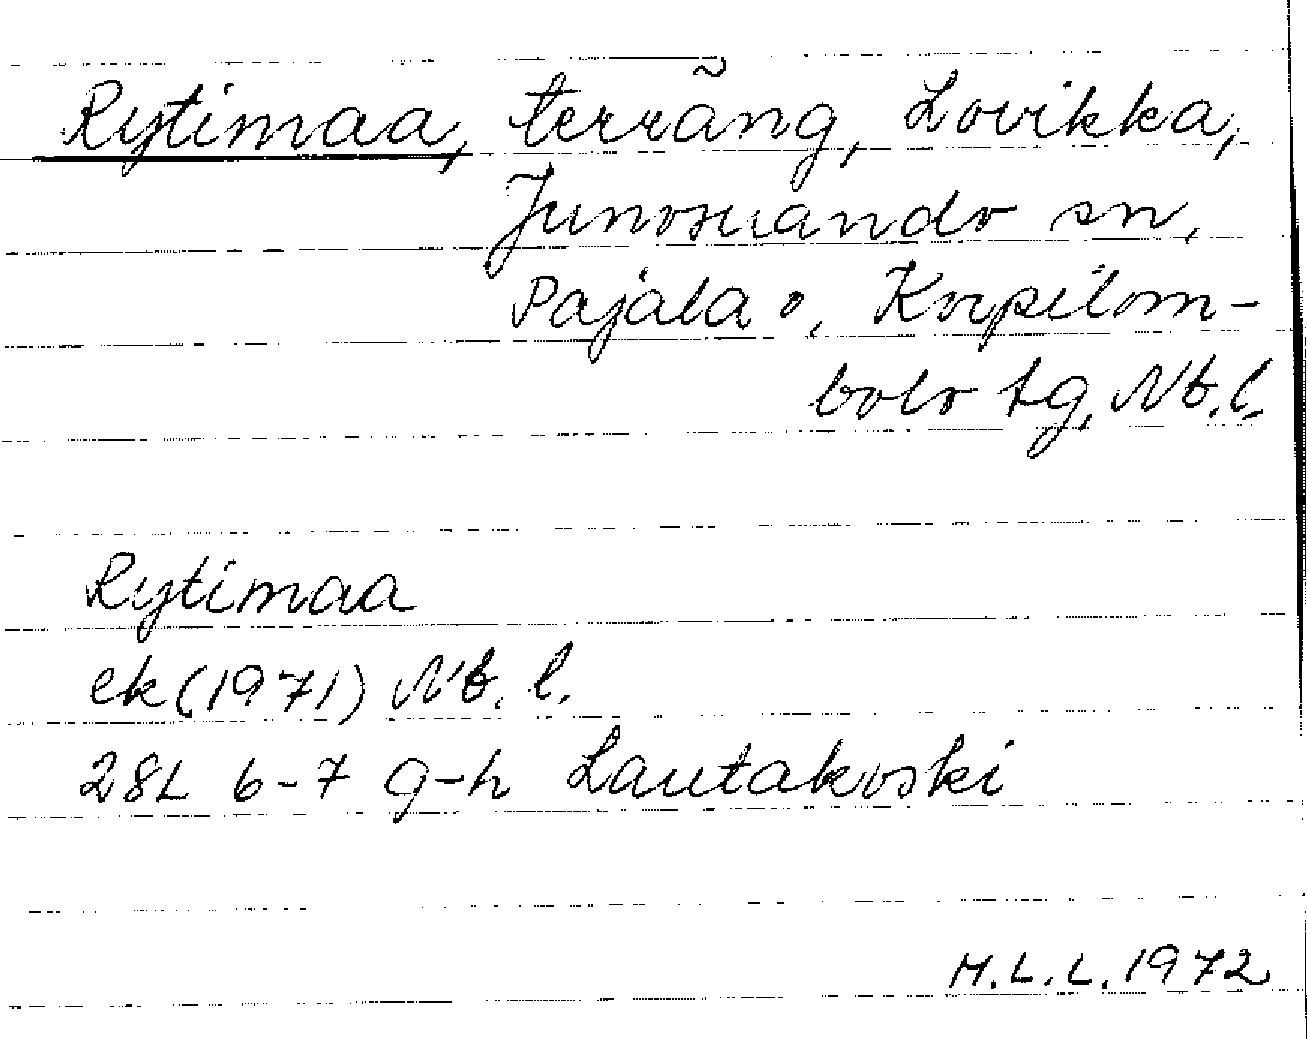 Rytimaa, terräng, Lovikka,
Junosuando sn,
Pajala o, Korpilom-
bolo tg, Nb.l.
Rytimaa
ek (1971) Nb. l.
28L 6-7 g-h Lautakoski
M.L.L. 1972